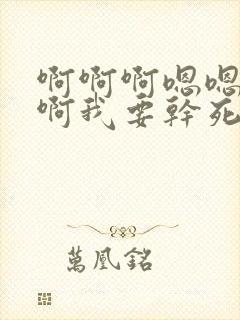 啊啊啊嗯嗯
啊我要幹死
萬凰銘